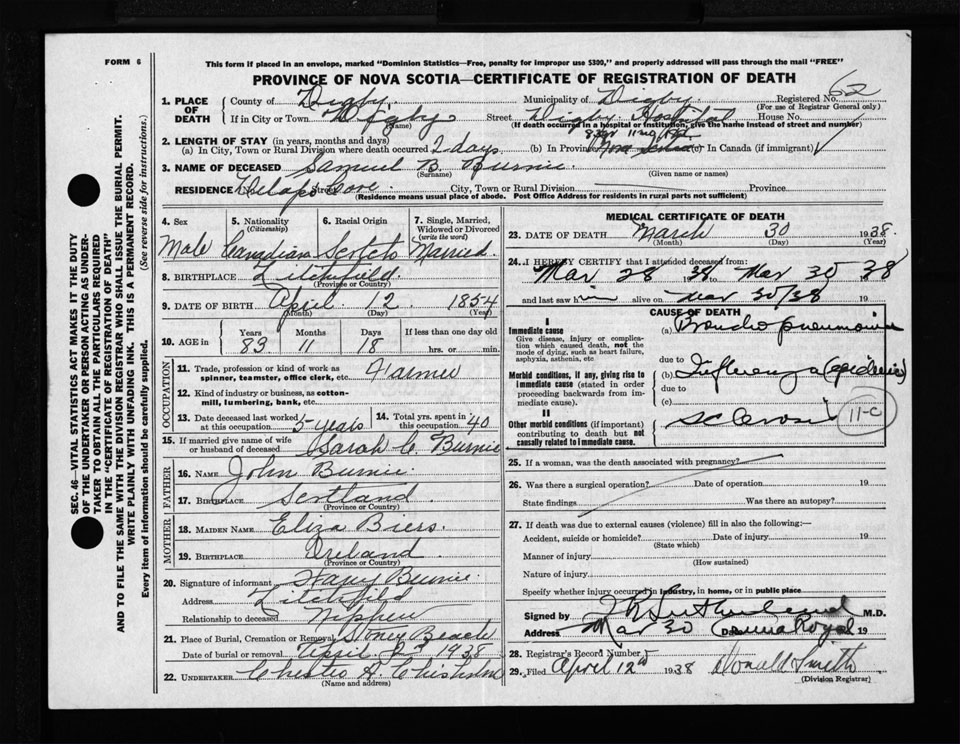 FORM 6
This form if placed in an envelope, marked "Dominion Statistics—Free, penalty for improper use $300," and properly addressed will pass through the mail "FREE"
PROVINCE OF NOVA SCOTIA—CERTIFICATE OF REGISTRATION OF DEATH
62
1. PLACE OF DEATH County of Digby Municipality of Digby Registered No.
(For use of Registrar General only)
If in City or Town Digby Street Digby Hospital House No.
(Name) (If death occurred in a hospital or institution, give the name instead of street and number)
2. LENGTH OF STAY (in years, months and days)
(a) In City, Town or Rural Division where death occurred 2 days (b) In Province Nova Scotia (c) In Canada (if immigrant)
3. NAME OF DECEASED Samuel B. Burnie
(Surname) (Given name or names)
RESIDENCE Cove Street City, Town or Rural Division Province
(Residence means usual place of abode. Post Office Address for residents in rural parts not sufficient)
4. Sex 5. Nationality (Citizenship) 6. Racial Origin 7. Single, Married, Widowed or Divorced (write the word)
Male Canadian Scotch Married
8. BIRTHPLACE Litchfield
(Province or Country)
9. DATE OF BIRTH April 12 1854
(Month) (Day) (Year)
10. AGE in Years Months Days If less than one day old
83 11 18 hrs. or min.
11. Trade, profession or kind of work as spinner, teamster, office clerk, etc. Farmer
12. Kind of industry or business, as cotton-mill, lumbering, bank, etc.
13. Date deceased last worked at this occupation 5 years 14. Total yrs. spent in this occupation 40
15. If married give name of wife or husband of deceased Sarah C. Burnie
FATHER
16. NAME John Burnie
17. BIRTHPLACE Scotland
(Province or Country)
MOTHER
18. MAIDEN NAME Eliza Biers
19. BIRTHPLACE Ireland
(Province or Country)
20. Signature of informant Harry Burnie
Address Litchfield
Relationship to deceased Nippew
21. Place of Burial, Cremation or Removal Stoney Beach
Date of burial or removal April 2nd 1938
22. UNDERTAKER A. Chisholm
(Name and address)
MEDICAL CERTIFICATE OF DEATH
23. DATE OF DEATH March 30 1938
(Month) (Day) (Year)
24. I HEREBY CERTIFY that I attended deceased from:
Mar 28 1938 to Mar 30 38
and last saw him alive on Mar 30/38 19
CAUSE OF DEATH
I
Immediate cause (a) Broncho pneumonia
Give disease, injury or complication which caused death, not the mode of dying, such as heart failure, asphyxia, asthenia, etc.
due to
Morbid conditions, if any, giving rise to immediate cause (stated in order proceeding backwards from immediate cause). (b) Influenza (epidemic)
due to
(c)
II
Other morbid conditions (if important) contributing to death but not causally related to immediate cause.
11-C
25. If a woman, was the death associated with pregnancy?
26. Was there a surgical operation? Date of operation 19
State findings Was there an autopsy?
27. If death was due to external causes (violence) fill in also the following:—
Accident, suicide or homicide? Date of injury 19
(State which)
Manner of injury
(How sustained)
Nature of injury
Specify whether injury occurred in industry, in home, or in public place
Signed by Sutherland M.D.
Address Mar 30 Annapolis Royal 19
28. Registrar's Record Number
29. Filed April 12th 1938 Donald Smith
(Division Registrar)
SEC. 46—VITAL STATISTICS ACT MAKES IT THE DUTY
OF THE UNDERTAKER OR PERSON ACTING AS UNDER-
TAKER TO OBTAIN ALL THE PARTICULARS REQUIRED
IN THE "CERTIFICATE OF REGISTRATION OF DEATH"
AND TO FILE THE SAME WITH THE DIVISION REGISTRAR WHO SHALL ISSUE THE BURIAL PERMIT.
WRITE PLAINLY WITH UNFADING INK. THIS IS A PERMANENT RECORD.
Every item of information should be carefully supplied. (See reverse side for instructions.)